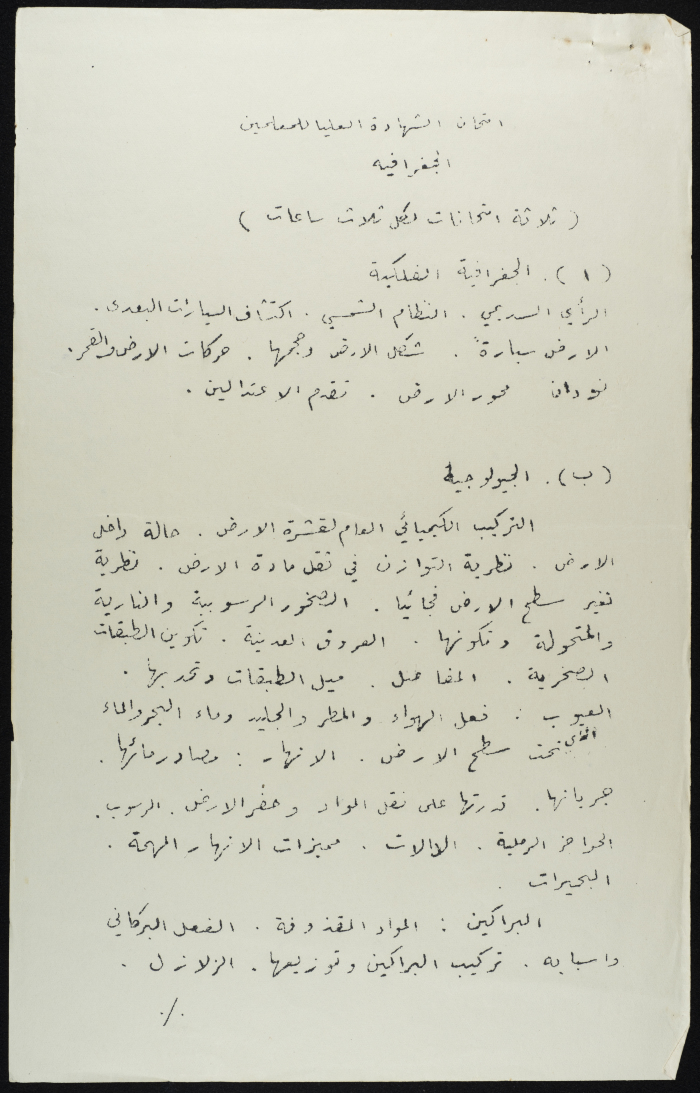 امتحان الشهادة العليا للمعلمين
الجغرافيه
(ثلاثة امتحانات لكل ثلاث ساعات)
(١). الجغرافية الفلكية
الرأي السديمي. النظام الشمسي. اكتشاف السيارات البعدى.
الارض سيارةً. شكل الارض وحجمها. حركات الارض والقمر.
نودان محور الارض. تقدم الاعتدالين.
(ب). الجيولوجية
التركيب الكيميائي العام لقشرة الارض. حالة داخل
الارض. نظرية التوازن في نقل مادة الارض. نظرية
تغير سطح الارض فجائيا. الصخور الرسوبية والنارية
والمتحولة وتكونها. العروق المعدنية. تكوين الطبقات
الصخرية. المفاصل. ميل الطبقات وتحدبها.
العيوب: فعل الهواء والمطر والجليد وماء البحر والماء
الذي تحت سطح الارض. الانهار: مصادر مائها.
جريانها. قدرتها على نقل المواد وحفر الارض. الرسوب.
الحواجز الرملية. الدالات. مميزات الانهار المهمة.
البحيرات.
البراكين: المواد المقذوفة. الفعل البركاني
واسبابه. تركيب البراكين وتوزيعها. الزلازل.
./.